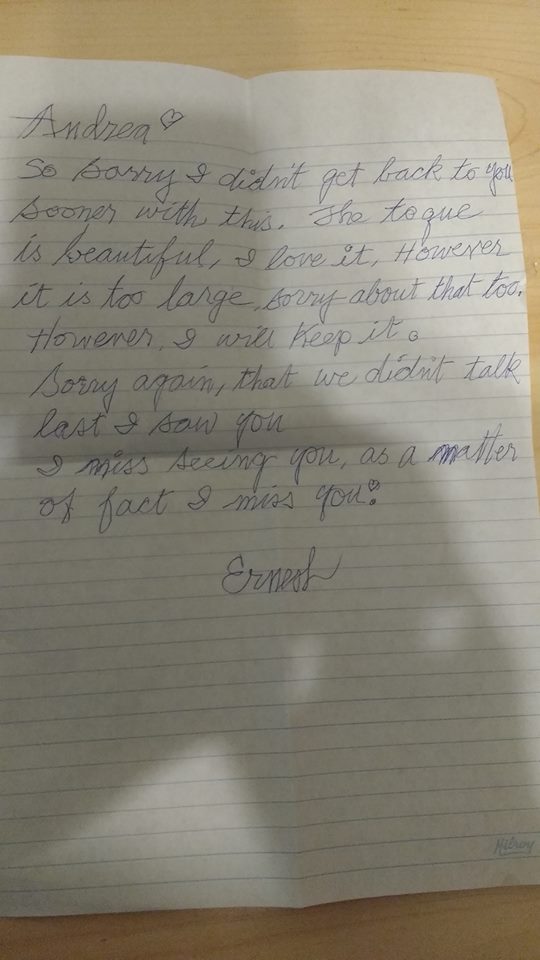 Andrea ♡
So sorry I didn't get back to you
sooner with this. The toque
is beautiful, I love it. However
it is too large, sorry about that too.
However, I will Keep it.
Sorry again, that we didn't talk
last I saw you
I miss seeing you, as a matter
of fact I miss you!
Ernest
Hilroy